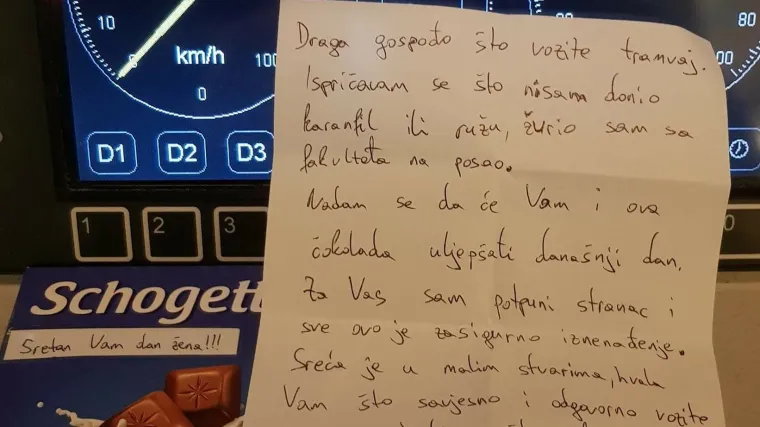 10
km/h
100
0
80
00
D1
D2
D3
1
2
3
0
Draga gospođo što vozite tramvaj.
Ispričavam se što nisam donio
karanfil ili ružu, žurio sam sa
fakulteta na posao.
Nadam se da će Vam i ova
čokolada uljepšati današnji dan.
Za Vas sam potpuni stranac i
sve ovo je zasigurno iznenađenje.
Sreća je u malim stvarima, hvala
Vam što savjesno i odgovorno vozite
Schogett
Sretan Vam dan žena!!!